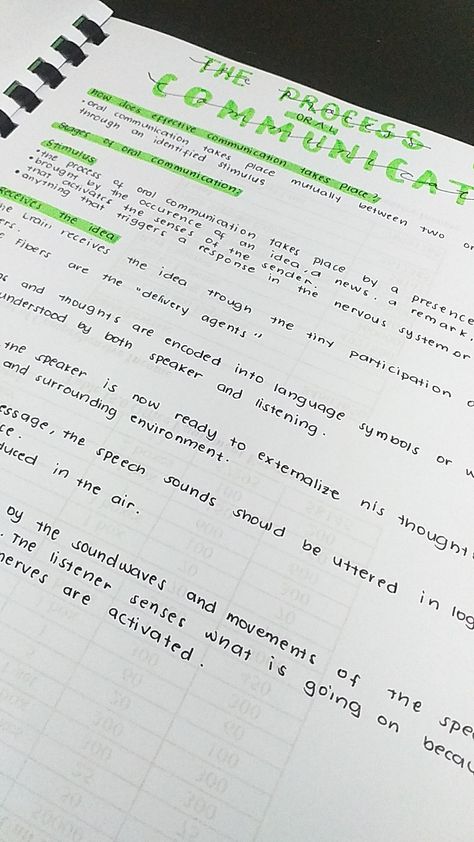 THE PROCESS
ORAL
COMMUNICAT
How does effective communication takes place?
• oral communication takes place mutually between two or
through an identified stimulus
Stages of oral communication:
Stimulus
• the process of oral communication takes place by a presence
• brought by the occurence of an idea, a news, a remark.
that activates the senses of the sender.
• anything that triggers a response in the nervous system or
receives the idea
the brain receives the idea trough the tiny participation o
ers.
e fibers are the "delivery agents"
s and thoughts are encoded into language symbols or w
understood by both speaker and listening.
the speaker is now ready to externalize his thought
and surrounding environment.
essage, the speech sounds should be uttered in log
ce.
duced in the air.
by the soundwaves and movements of the spe
. The listener senses what is going on becau
nerves are activated.